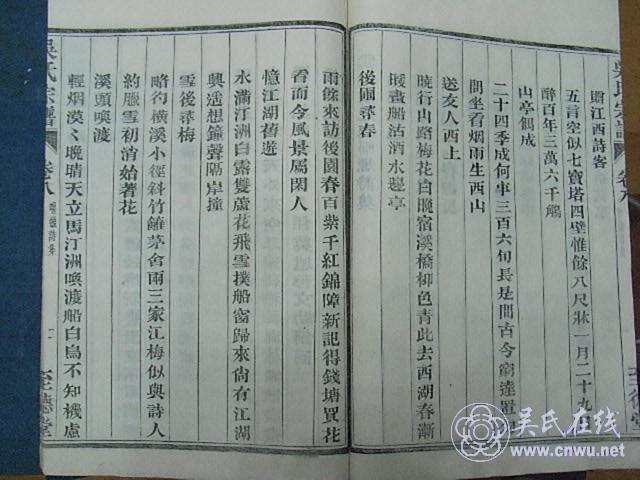 吳氏宗譜
卷八
贈江西詩客
五言空似七寶塔四壁惟餘八尺牀一月二十九日
醉百年三萬六千觴
山亭偶成
二十四季成何事三百六旬長是閒古今窮達置
間坐看烟雨生西山
送友人西上
曉行山路梅花白晚宿溪橋柳色青此去西湖春漸
暖畫船沽酒水邊亭
後圃尋春
雨餘來訪後園春百紫千紅錦障新記得錢塘買花
看而今風景屬閑人
憶江湖舊遊
水滿汀洲白露雙蘆花飛雪撲船窗歸來尚有江湖
興遥想鐘聲隔岸撞
雪後尋梅
略彴橫溪小徑斜竹籬茅舍兩三家江梅似與詩人
約臘雪初消始著花
溪頭喚渡
輕烟漠々晚晴天立馬汀洲喚渡船白鳥不知機慮
吳氏宗譜
卷八
至德堂
至德堂
吴氏在线
www.cnwu.net